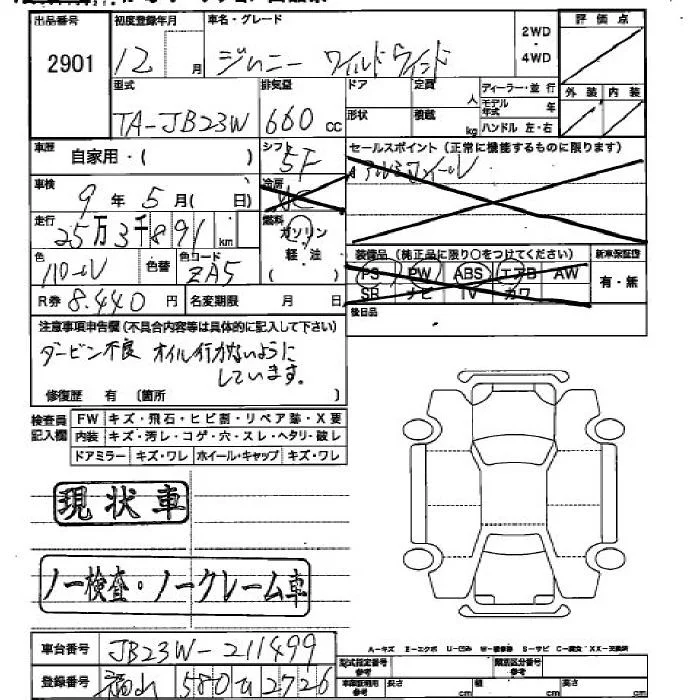 出品番号 初度登録年月 車名・グレード 2WD・4WD 評価点
2901 12 月 ジムニー ワイルドウインド
型式 排気量 ドア 定員 人 ディーラー・並行 外装 内装
TA-JB23W 660 cc 形状 積載 kg モデル年式 年 ハンドル 左・右
車歴 自家用・( ) シフト 5F セールスポイント(正常に機能するものに限ります)
車検 9 年 5 月( 日) 冷房 AC アルミホイール
走行 25万3千891 km 燃料 ガソリン・軽油 ( )
色 色替 色コード ZA5 装備品(純正品に限り○をつけてください) 新車保証書
PS PW ABS エアB AW 有・無
SR ナビ TV カワ
R券 8.440 円 名変期限 月 日 後日品
注意事項申告欄(不具合内容等は具体的に記入して下さい)
タービン不良 オイル行かないように
しています。
修復歴 有 〔箇所 〕
検査員記入欄 FW キズ・飛石・ヒビ割・リペア跡・X要
内装 キズ・汚レ・コゲ・穴・スレ・ヘタリ・破レ
ドアミラー キズ・ワレ ホイール・キャップ キズ・ワレ
現状車
ノー検査・ノークレーム車
A-キズ E-エクボ U-凹み W-補修跡 S-サビ C-腐食 XX-交換済
車台番号 JB23W-211499 型式指定番号 類別区分番号
登録番号 福山 580 ひ 2726 車庫証明用参考 長さ cm 幅 cm 高さ cm